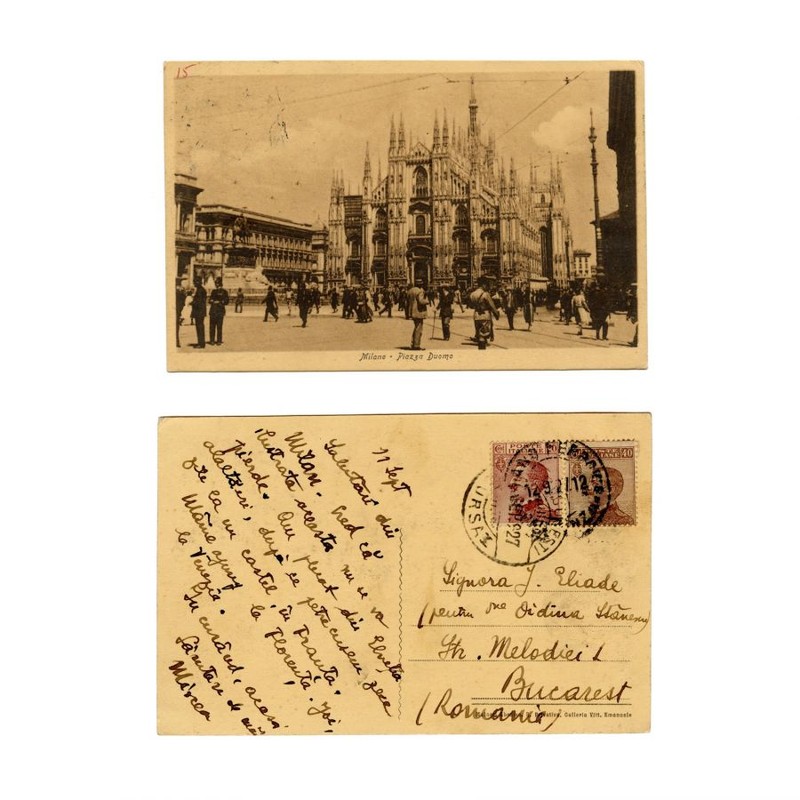 15
Milano - Piazza Duomo
11 Sept
Salutări din
Milan. Cred că
ilustrata aceasta nu se va
pierde. Am plecat din Elveția
alaltăieri, după ce petrecusem zece
zile ca un castel, în Franța.
Mâine ajung la Florența. Joi,
la Veneția.
În curând, acasă
Sărutări de mâini
Mircea
POSTE
40
12.9.27.12
Signora J. Eliade
(pentru Dne Didina Stănescu)
Str. Melodiei 1
Bucarest
(Romania)
Galleria Vitt. Emanuele